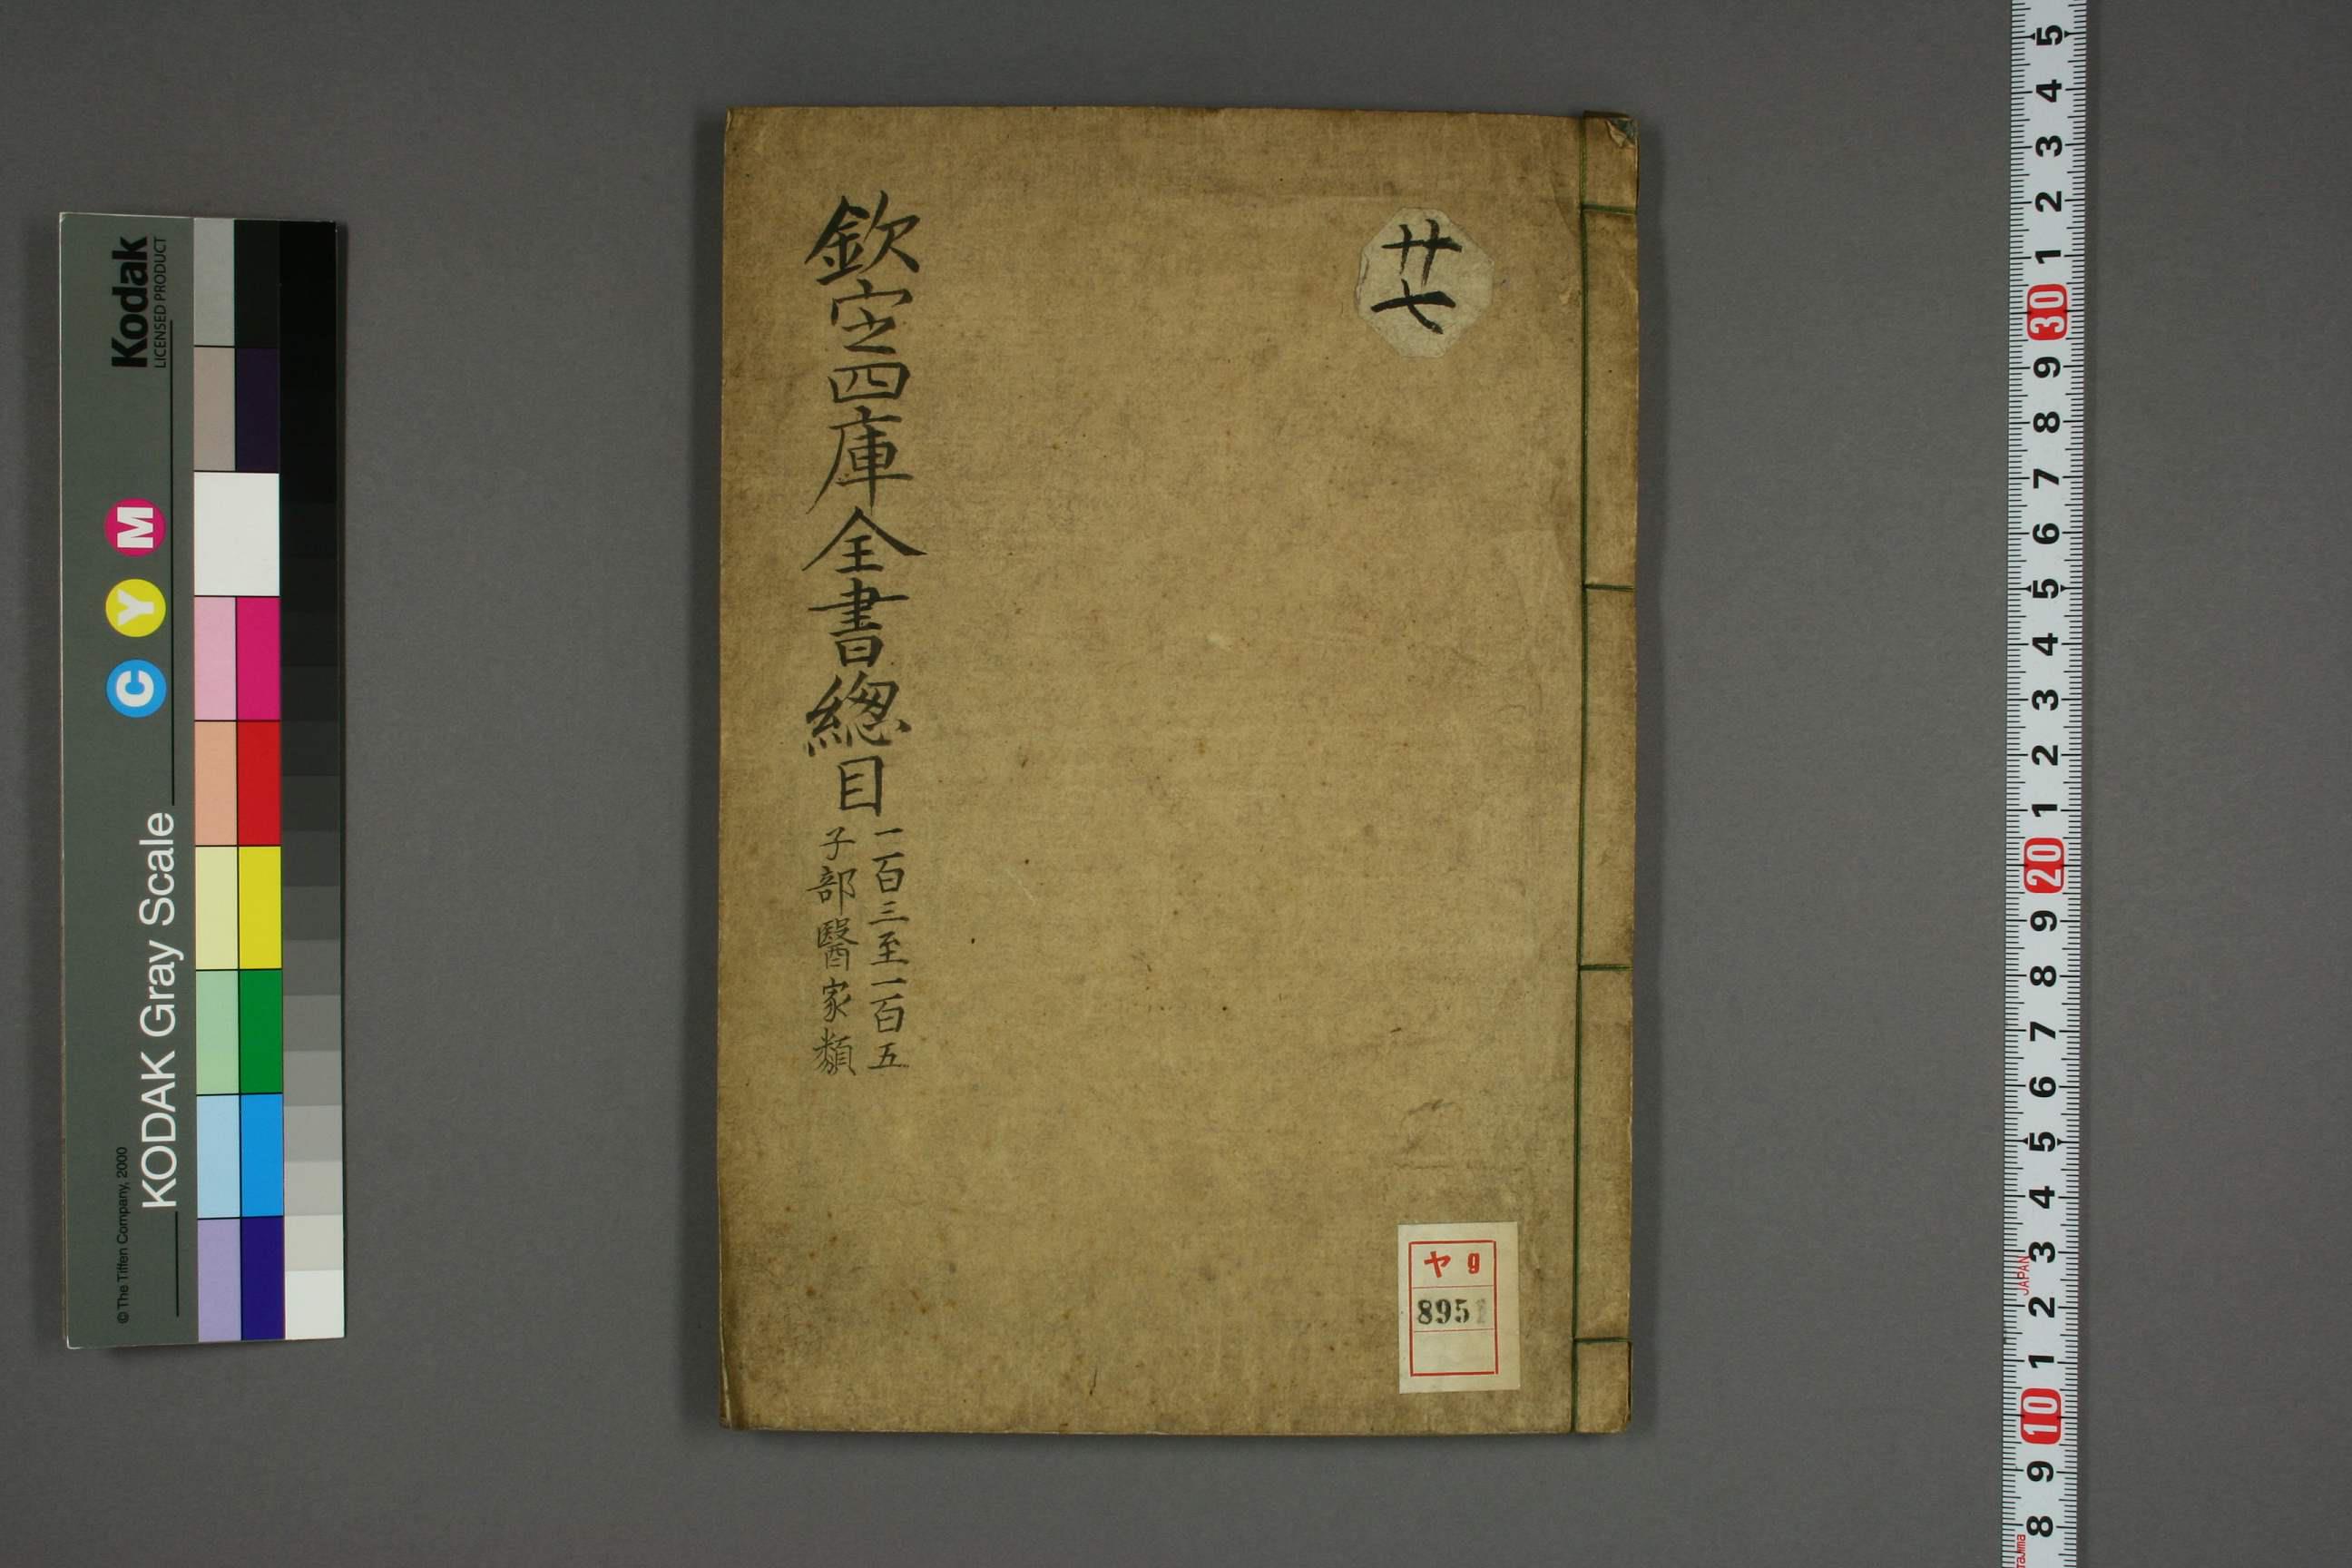 欽定四庫全書總目
一百三至一百五
子部醫家類
廿七
ヤ 9
895
Kodak
LICENSED PRODUCT
C Y M
KODAK Gray Scale
© The Tiffen Company, 2000
5
4
3
2
1
30
9
8
7
6
5
4
3
2
1
20
9
8
7
6
5
4
3
2
1
10
9
8
JAPAN